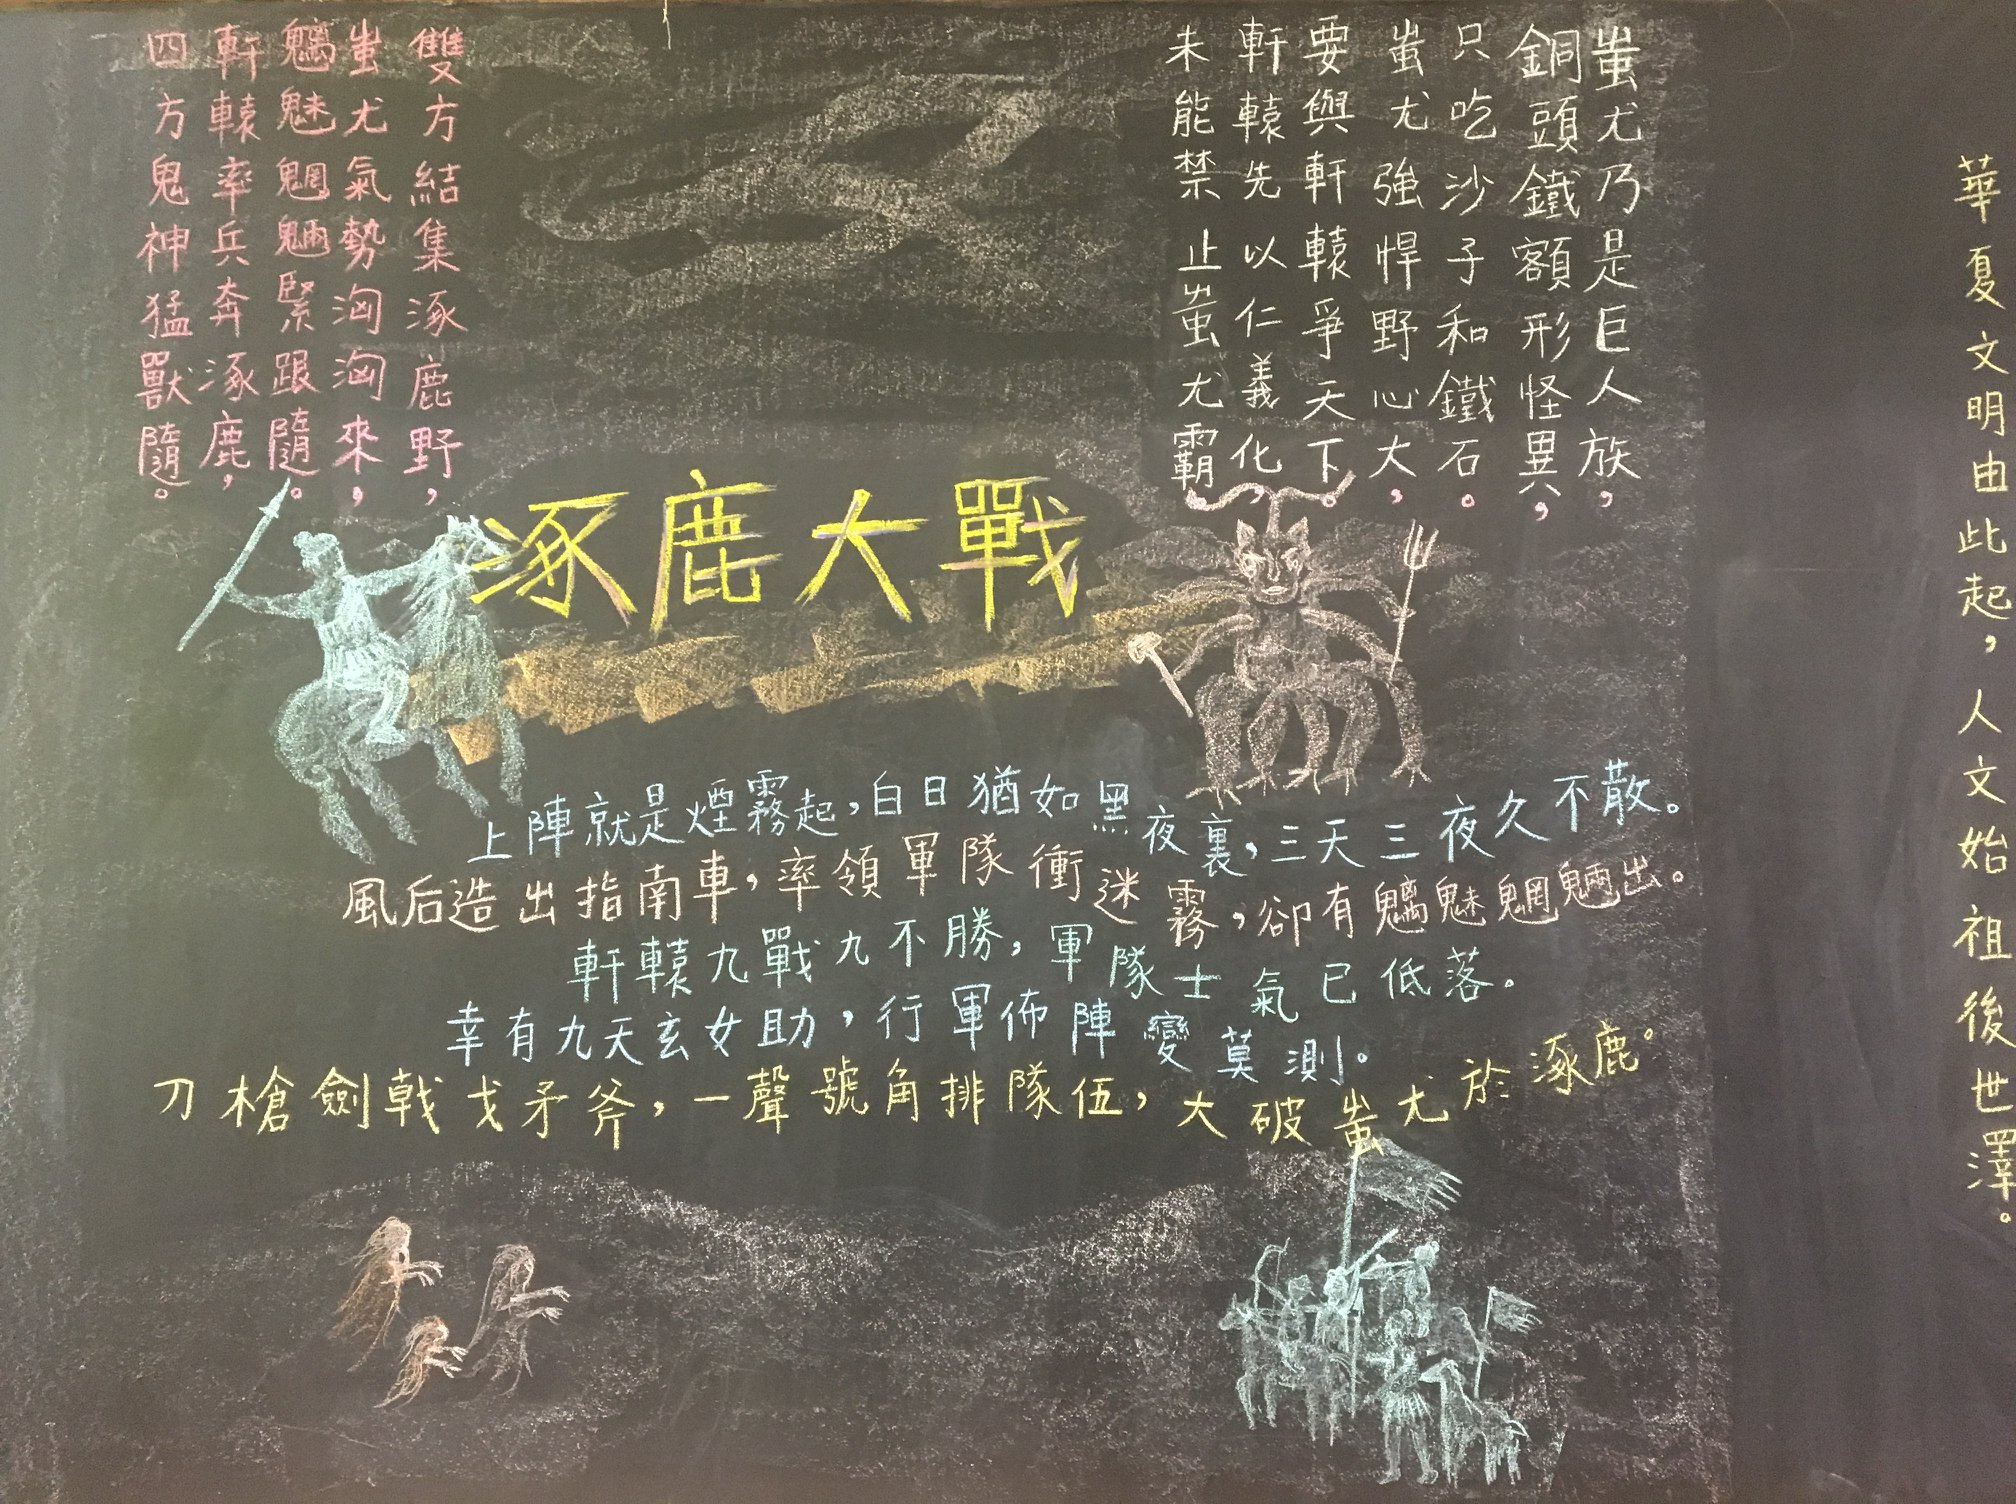 涿鹿大戰
蚩尤乃是巨人族，
銅頭鐵額形怪異，
只吃沙子和鐵石。
蚩尤強悍野心大，
要與軒轅爭天下。
軒轅先以仁義化，
未能禁止蚩尤霸。
雙方結集涿鹿野，
蚩尤氣勢洶洶來，
魑魅魍魎緊跟隨。
軒轅率兵奔涿鹿，
四方鬼神猛獸隨。
上陣就是煙霧起，白日猶如黑夜裏，三天三夜久不散。
風后造出指南車，率領軍隊衝迷霧，卻有魑魅魍魎出。
軒轅九戰九不勝，軍隊士氣已低落。
幸有九天玄女助，行軍佈陣變莫測。
刀槍劍戟戈矛斧，一聲號角排隊伍，大破蚩尤於涿鹿。
華夏文明由此起，人文始祖後世澤。